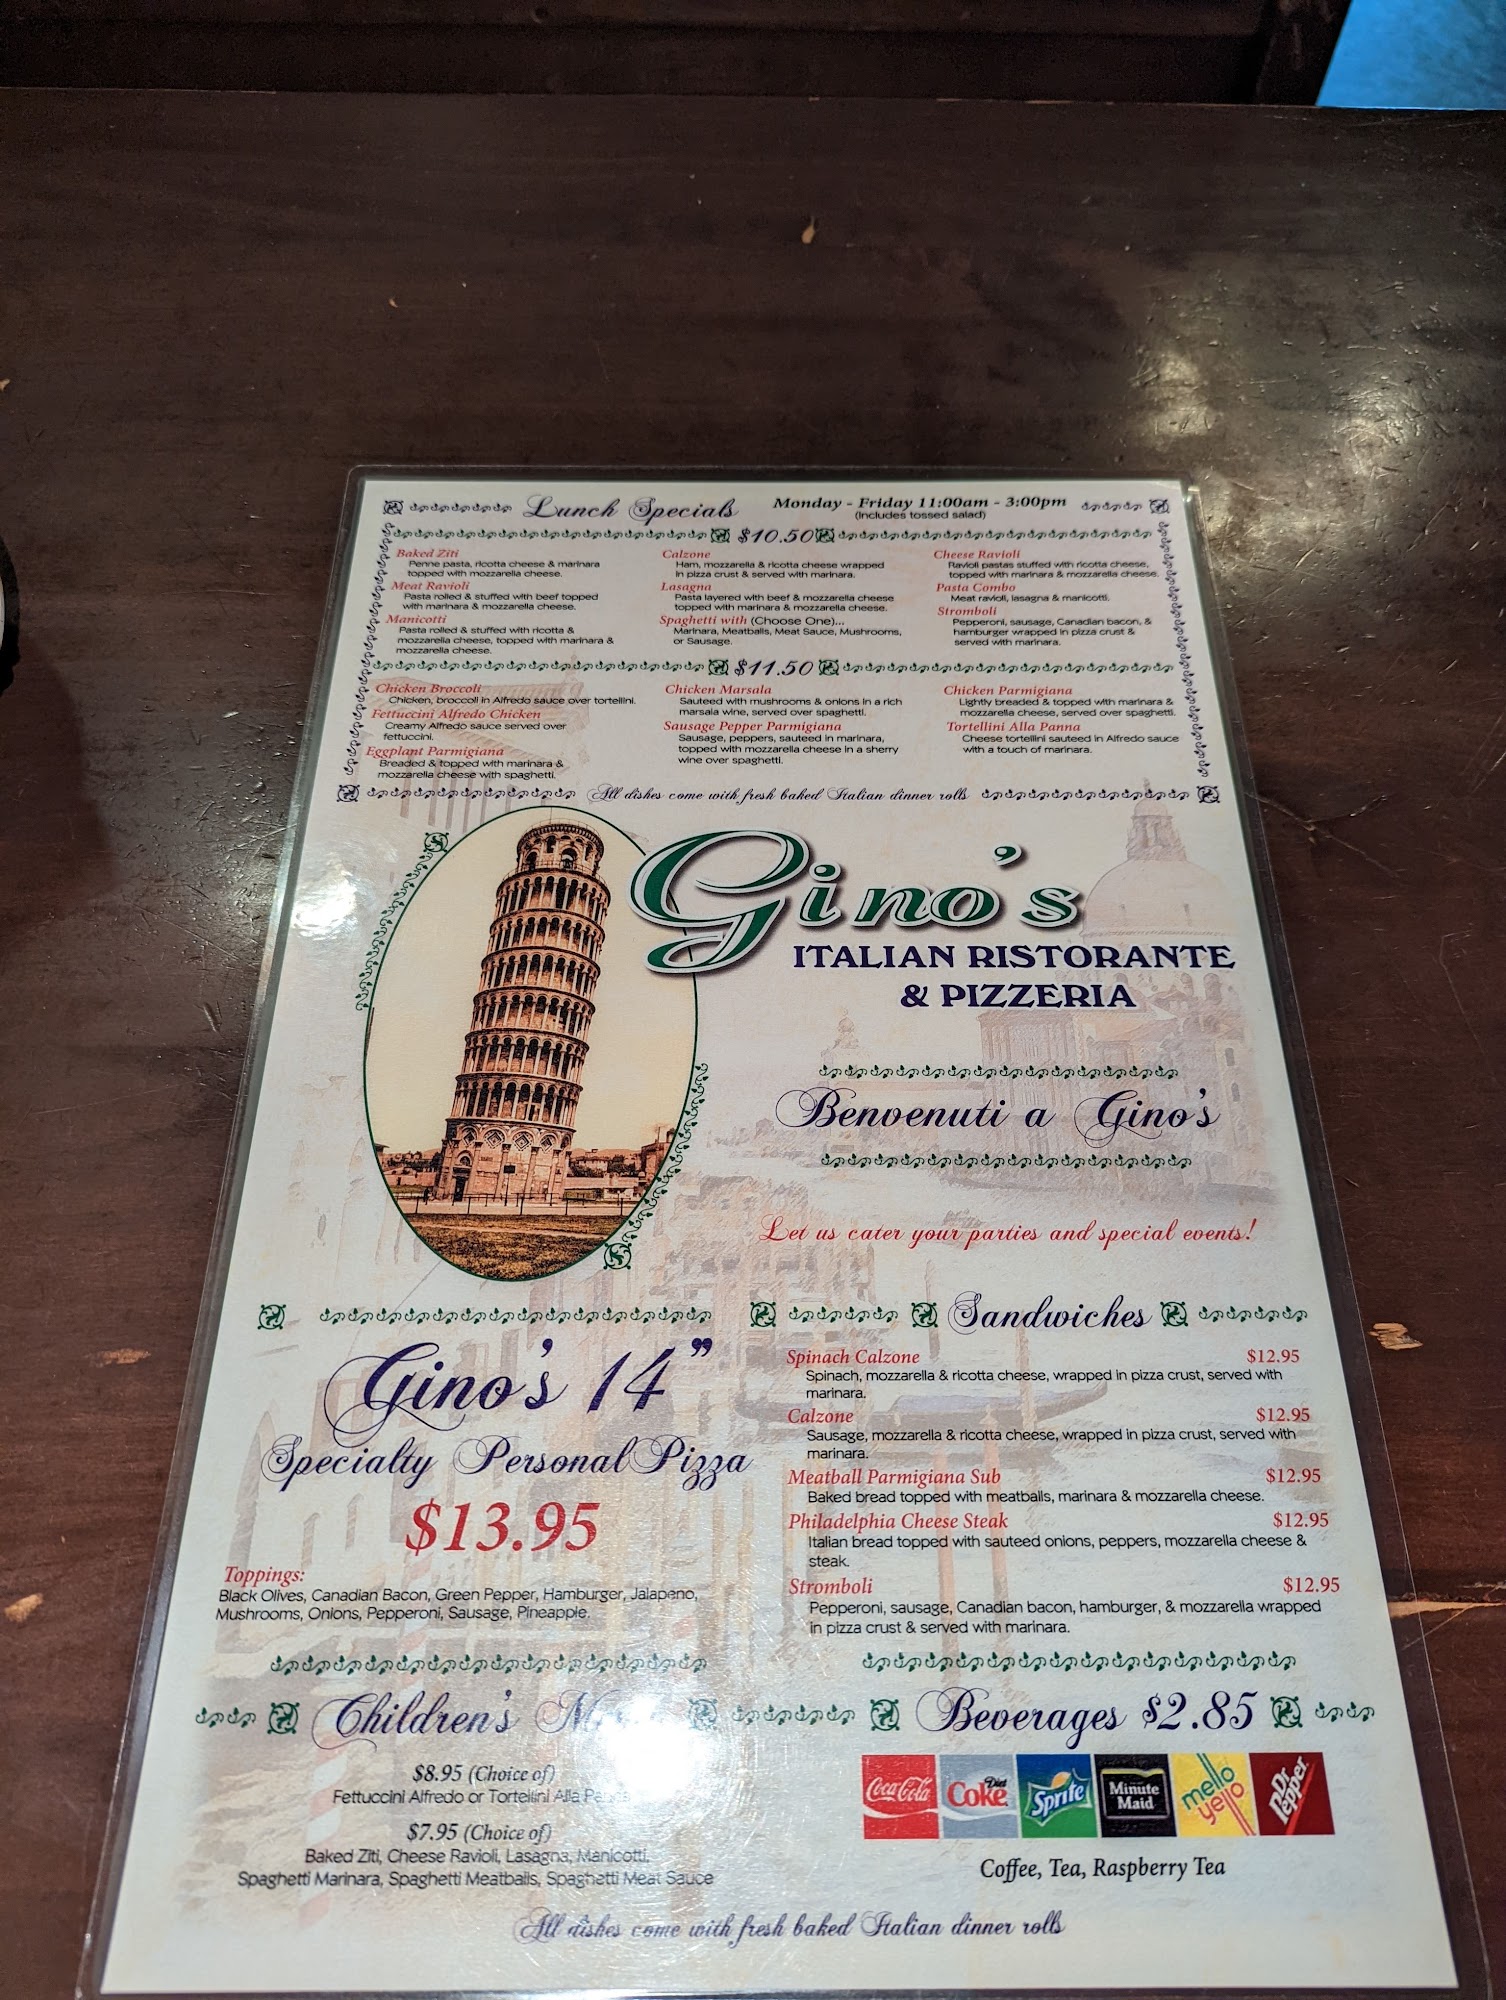 Lunch Specials
Monday - Friday 11:00am - 3:00pm
(Includes tossed salad)
$10.50
Baked Ziti
Penne pasta, ricotta cheese & marinara
topped with mozzarella cheese.
Meat Ravioli
Pasta rolled & stuffed with beef topped
with marinara & mozzarella cheese.
Manicotti
Pasta rolled & stuffed with ricotta &
mozzarella cheese, topped with marinara &
mozzarella cheese.
Calzone
Ham, mozzarella & ricotta cheese wrapped
in pizza crust & served with marinara.
Lasagna
Pasta layered with beef & mozzarella cheese
topped with marinara & mozzarella cheese.
Spaghetti with (Choose One)...
Marinara, Meatballs, Meat Sauce, Mushrooms,
or Sausage.
Cheese Ravioli
Ravioli pastas stuffed with ricotta cheese,
topped with marinara & mozzarella cheese.
Pasta Combo
Meat ravioli, lasagna & manicotti.
Stromboli
Pepperoni, sausage, Canadian bacon, &
hamburger wrapped in pizza crust &
served with marinara.
$11.50
Chicken Broccoli
Chicken, broccoli in Alfredo sauce over tortellini.
Fettuccini Alfredo Chicken
Creamy Alfredo sauce served over
fettuccini.
Eggplant Parmigiana
Breaded & topped with marinara &
mozzarella cheese with spaghetti.
Chicken Marsala
Sauteed with mushrooms & onions in a rich
marsala wine, served over spaghetti.
Sausage Pepper Parmigiana
Sausage, peppers, sauteed in marinara,
topped with mozzarella cheese in a sherry
wine over spaghetti.
Chicken Parmigiana
Lightly breaded & topped with marinara &
mozzarella cheese, served over spaghetti.
Tortellini Alla Panna
Cheese tortellini sauteed in Alfredo sauce
with a touch of marinara.
All dishes come with fresh baked Italian dinner rolls
Gino's
ITALIAN RISTORANTE
& PIZZERIA
Benvenuti a Gino's
Let us cater your parties and special events!
Gino's 14”
Specialty Personal Pizza
$13.95
Toppings:
Black Olives, Canadian Bacon, Green Pepper, Hamburger, Jalapeno,
Mushrooms, Onions, Pepperoni, Sausage, Pineapple.
Sandwiches
Spinach Calzone $12.95
Spinach, mozzarella & ricotta cheese, wrapped in pizza crust, served with
marinara.
Calzone $12.95
Sausage, mozzarella & ricotta cheese, wrapped in pizza crust, served with
marinara.
Meatball Parmigiana Sub $12.95
Baked bread topped with meatballs, marinara & mozzarella cheese.
Philadelphia Cheese Steak $12.95
Italian bread topped with sauteed onions, peppers, mozzarella cheese &
steak.
Stromboli $12.95
Pepperoni, sausage, Canadian bacon, hamburger, & mozzarella wrapped
in pizza crust & served with marinara.
Children's
$8.95 (Choice of)
Fettuccini Alfredo or Tortellini Alla
$7.95 (Choice of)
Baked Ziti, Cheese Ravioli, Lasagna, Manicotti,
Spaghetti Marinara, Spaghetti Meatballs, Spaghetti Meat Sauce
Beverages $2.85
Coca-Cola
Diet
Coke
Sprite
Minute
Maid
mello
yello
Dr
Pepper
Coffee, Tea, Raspberry Tea
All dishes come with fresh baked Italian dinner rolls